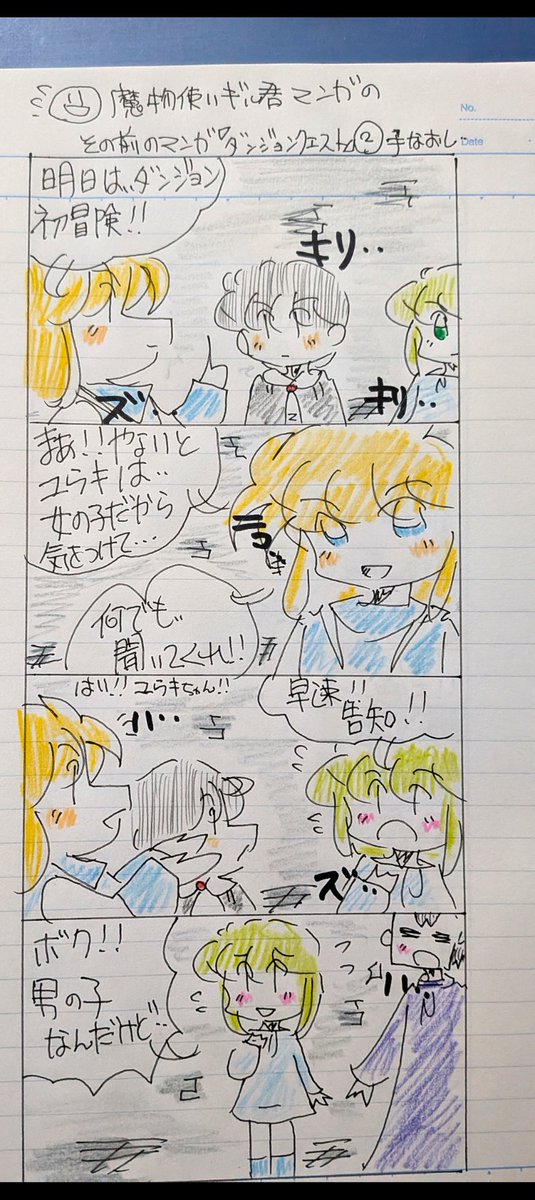 魔物使いギル君マンガの
その前のマンガ「ダンジョンクエスト」②手なおし..
No.
Date
明日は、ダンジョン
初冒険!!
キリ・・
キリ・・
ズ・・
まあ!!やないと
ユラキは・・
女の子だから
気をつけて・・・
ニコ
何でも
聞いてくれ!!
はい!!ユラキちゃん!!
早速!!
告知!!
ズ・・
ボク!!
男の子
なんだけど・・